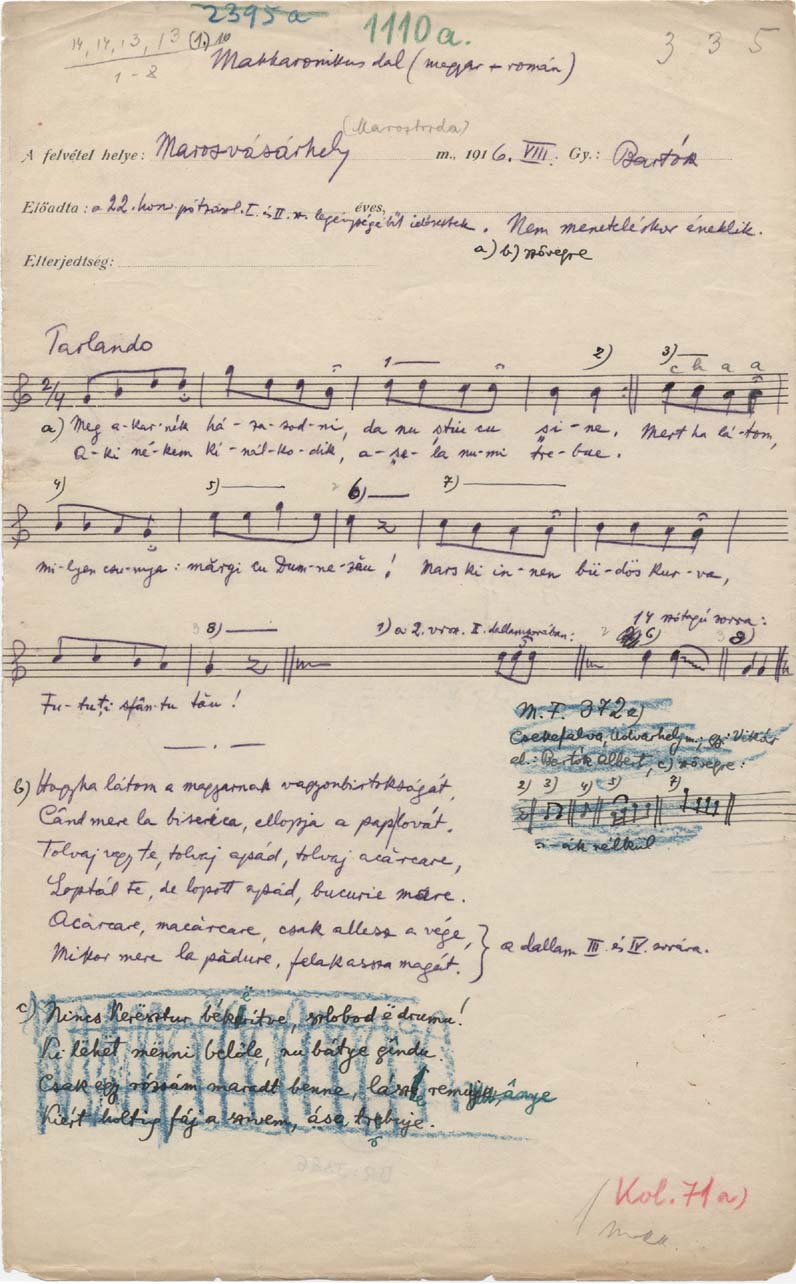 2395a
1110a.
14, 14, 13, 13 (1.) 10
1 - 8
3 3 5
Makkaronikus dal (magyar + román)
(Marostorda)
A felvétel helye: Marosvásárhely m., 1916. VIII. Gy.: Bartók
Előadta: a 22. honv. pótzászl. I. és II. sz. legénységéből idősebbek. éves, Nem meneteléskor éneklik.
a) b) szövegre
Elterjedtség:
Parlando
1 2) 3)
c h a a
2/4
a) Meg a-kar-nék há-za-sod-ni, da nu știu cu și-ne, Mert ha lá-tom,
A-ki né-kem kí-nál-ko-dik, a-șe-la nu-mi tre-bue.
4) 5) 6) 7)
mi-lyen csu-nya: mărgi cu Dum-ne-zău! Mars ki in-nen bü-dös kur-va,
8) 1) a 2. vrsz. II. dallamsorában: 14 szótagú sorra:
6) 8)
Fu-tu-ți sfân-tu tău!
M.F. 372a)
Csekefalva, Udvarhely m.; gy: Vikár
el.: Bartók Albert, c) szövegre:
2) 3) 4) 5) 7)
-ák nélkül
b) Hogyha látom a magyarnak vagyonbirtokságát,
Când mere la biserica, ellopja a pap lovát.
Tolvaj vagy te, tolvaj apád, tolvaj acărcare,
Loptál te, de lopott apád, bucurie mare.
Acărcare, macărcare, csak allesz a vége,
Mikor mere la pădure, felakassza magát. } a dallam III. és IV. sorára.
c) Nincs Kerësztur békerítve, szlobod ë drumu!
Ki lëhet mënni belőle, nu bátye gîndu.
Csak egy rózsám maradt benne,
Kiért holtig fáj a szivem, ása trebuje.
Kol. 71a)